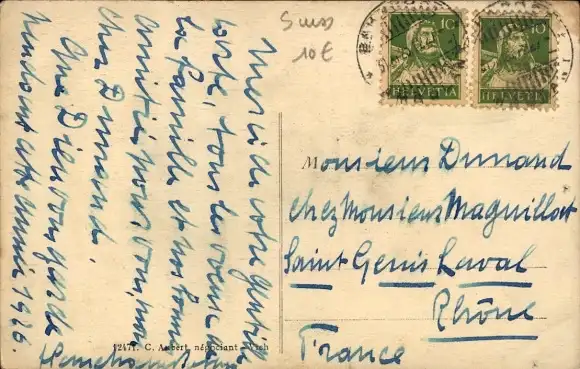 Suss
10 €
10
HELVETIA
10
HELVETIA
Merci de votre gentille
carte, tous les vœux de
la famille et nos bonnes
amitiés pour vous, mon
cher Dunand.
Que Dieu vous garde
pendant cette année 1926.
Monsieur Dunand
chez Monsieur Maguillat
Saint Genis Laval
Rhône
France
12471. C. Aubert, négociant